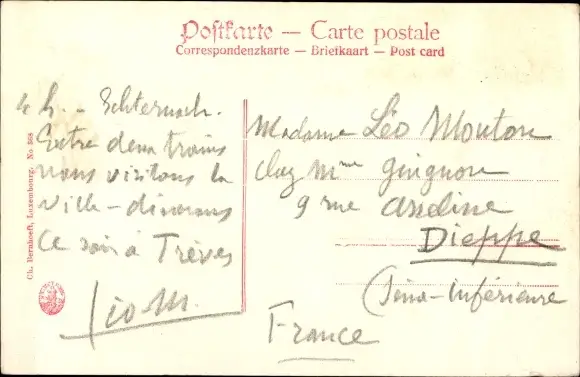 Postkarte — Carte postale
Correspondenzkarte — Briefkaart — Post card
4 h. - Echternach.
Entre deux trains
nous visitons la
ville - dinerons
ce soir à Trèves
Léo M.
Ch. Bernhoeft, Luxembourg. No 368
Madame Léo Mouton
chez Mme Guignon
9 rue Asseline
Dieppe
(Seine-Inférieure
France